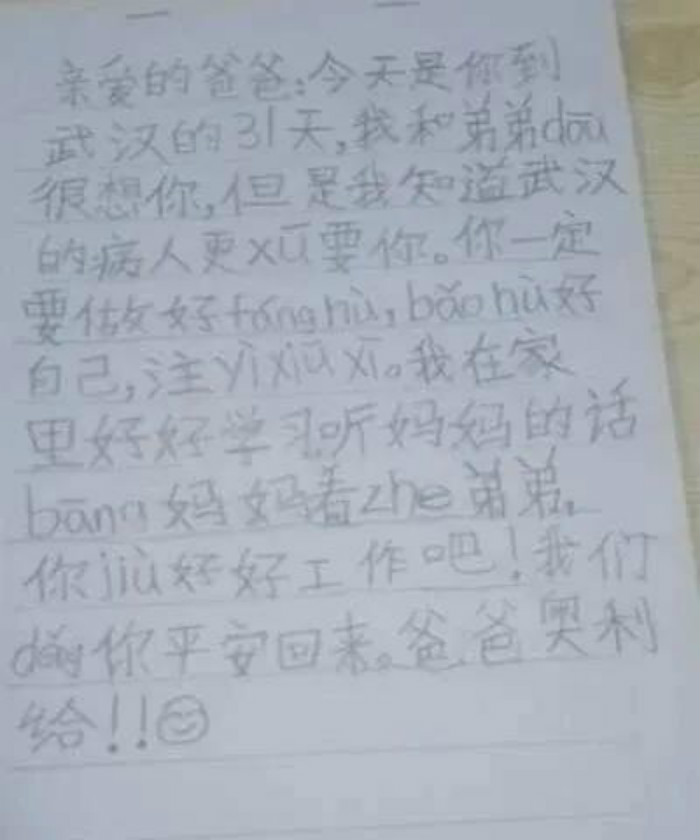 亲爱的爸爸:今天是你到
武汉的31天,我和弟弟dōu
很想你,但是我知道武汉
的病人更xū要你。你一定
要做好fánghù,bǎohù好
自己,注yìxiūxī。我在家
里好好学习听妈妈的话
bāng妈妈看zhe弟弟。
你jiù好好工作吧!我们
děng你平安回来。爸爸奥利
给!!